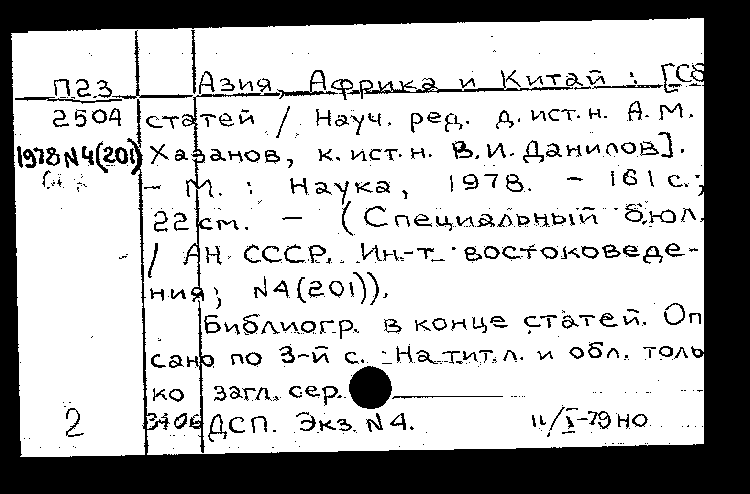 П23 Азия, Африка и Китай : [Сб
2504 статей / Науч. ред. д. ист. н. А. М.
1978 N4(201) Хазанов, к. ист. н. В. И. Данилов].
- М. : Наука, 1978. - 161 с.;
22 см. - (Специальный бюл.
/ АН СССР. Ин-т востоковеде-
ния; N4(201)).
Библиогр. в конце статей. Оп
сано по 3-й с. На тит. л. и обл. толь
ко загл. сер.
2 3406 ДСП. Экз. N4. 11/I-79 но